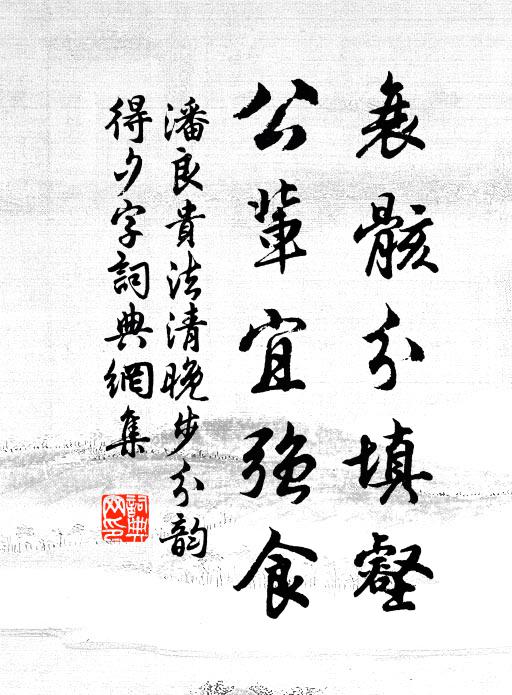 衰骸分填壑
公輩宜強食
潘良貴法清晚步分韵
得夕字詞典網集
詞典
网